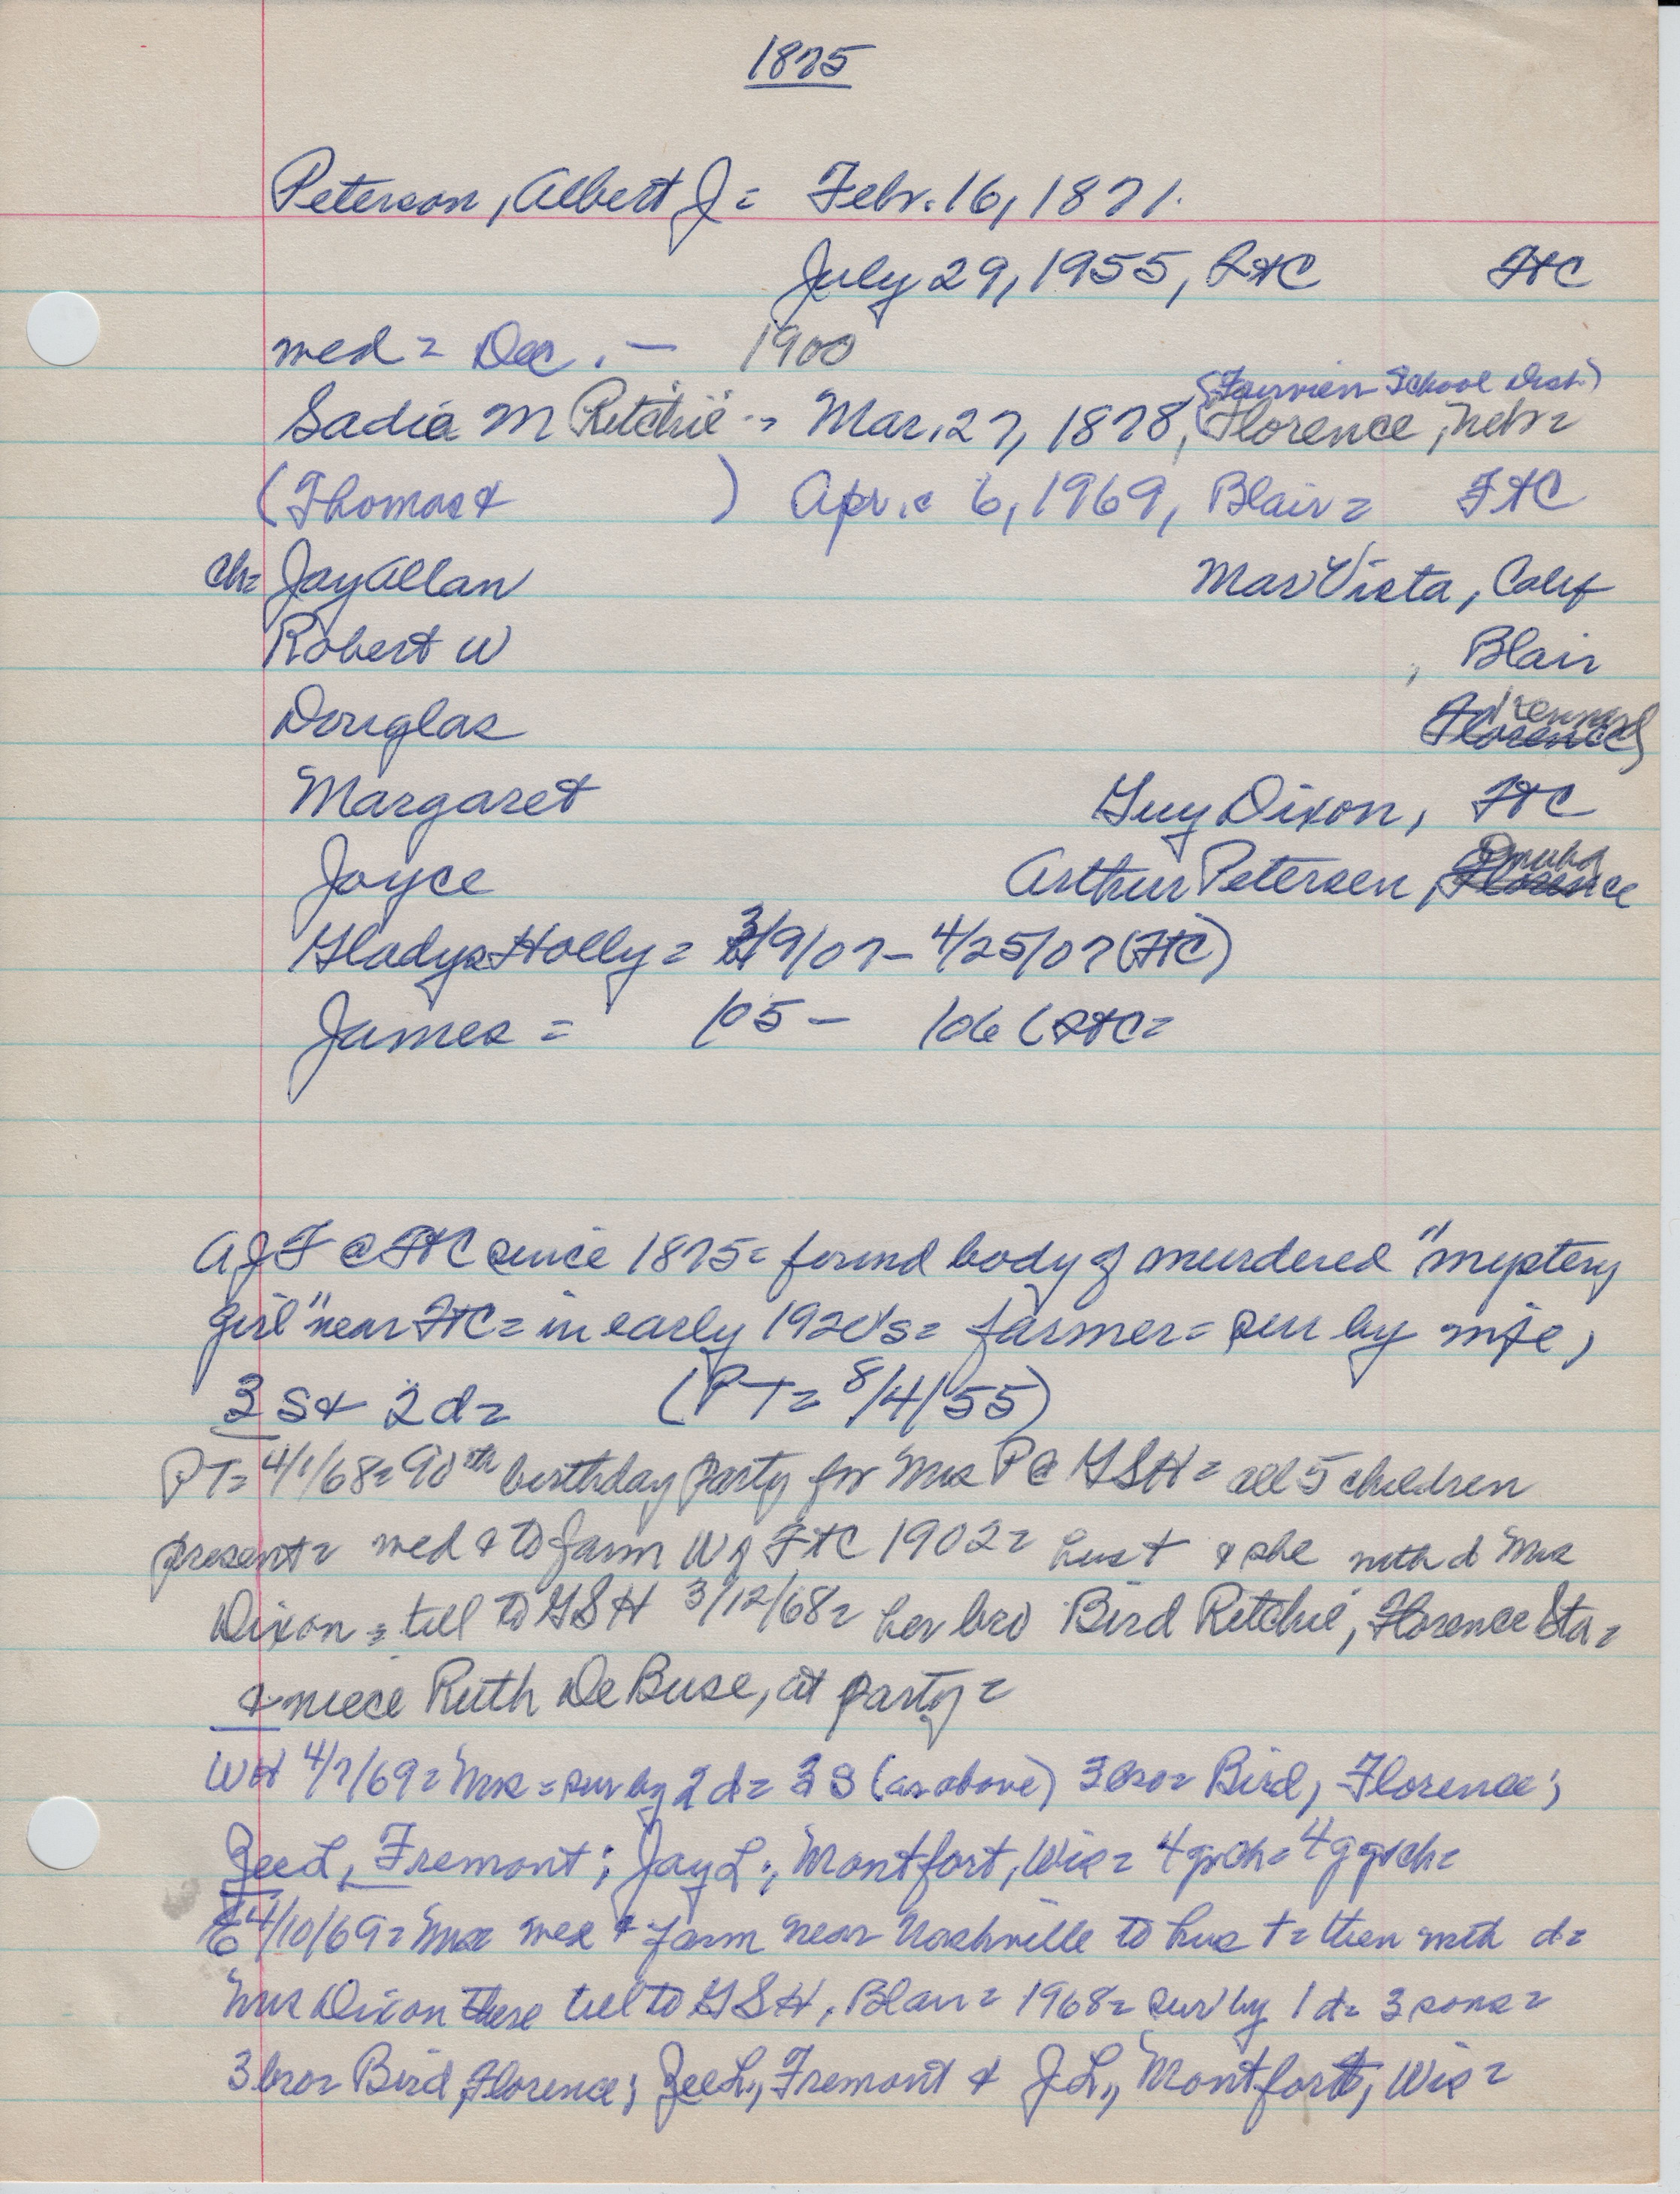 1875
Peterson, Albert J = Febr. 16, 1871.
July 29, 1955, FtC FtC
med = Dec. — 1900
(Fairview School Dist.)
Sadie M Ritchie = Mar. 27, 1878, Florence, Nebr =
(Thomas & ) Apr. 6, 1969, Blair = FtC
ch = Jay Allan Mar Vista, Calif
Robert W , Blair
Douglas Florence
Margaret Guy Dixon, FtC
Joyce Arthur Petersen, Omaha Florence
Gladys Holly = 3/9/07 – 4/25/07 (FtC)
James = /05 – /06 (FtC =
AJF @ FtC since 1875 = found body of murdered "mystery
girl" near FtC = in early 1920's = farmer = sur by wife,
3 s & 2 d = (PT = 8/4/55)
PT = 4/1/68 = 90th birthday party for Mrs P @ GSH = all 5 children
present = med & to farm W of FtC 1902 = hus t & she with d Mrs
Dixon = till to GSH 3/12/68 = her bro Bird Ritchie, Florence Sta =
& niece Ruth DeBuse, at party =
WH 4/7/69 = Mrs = sur by 2 d = 3 S (as above) 3 bro = Bird, Florence;
Zee L, Fremont; Jay L., Montfort, Wis = 4 grch = 4 ggrch =
E 4/10/69 = Mrs med & farm near Nashville to hus t = then with d =
Mrs Dixon there till to GSH, Blair = 1968 = sur by 1 d = 3 sons =
3 bro = Bird, Florence; Zee L., Fremont & J.L., Montfort, Wis =